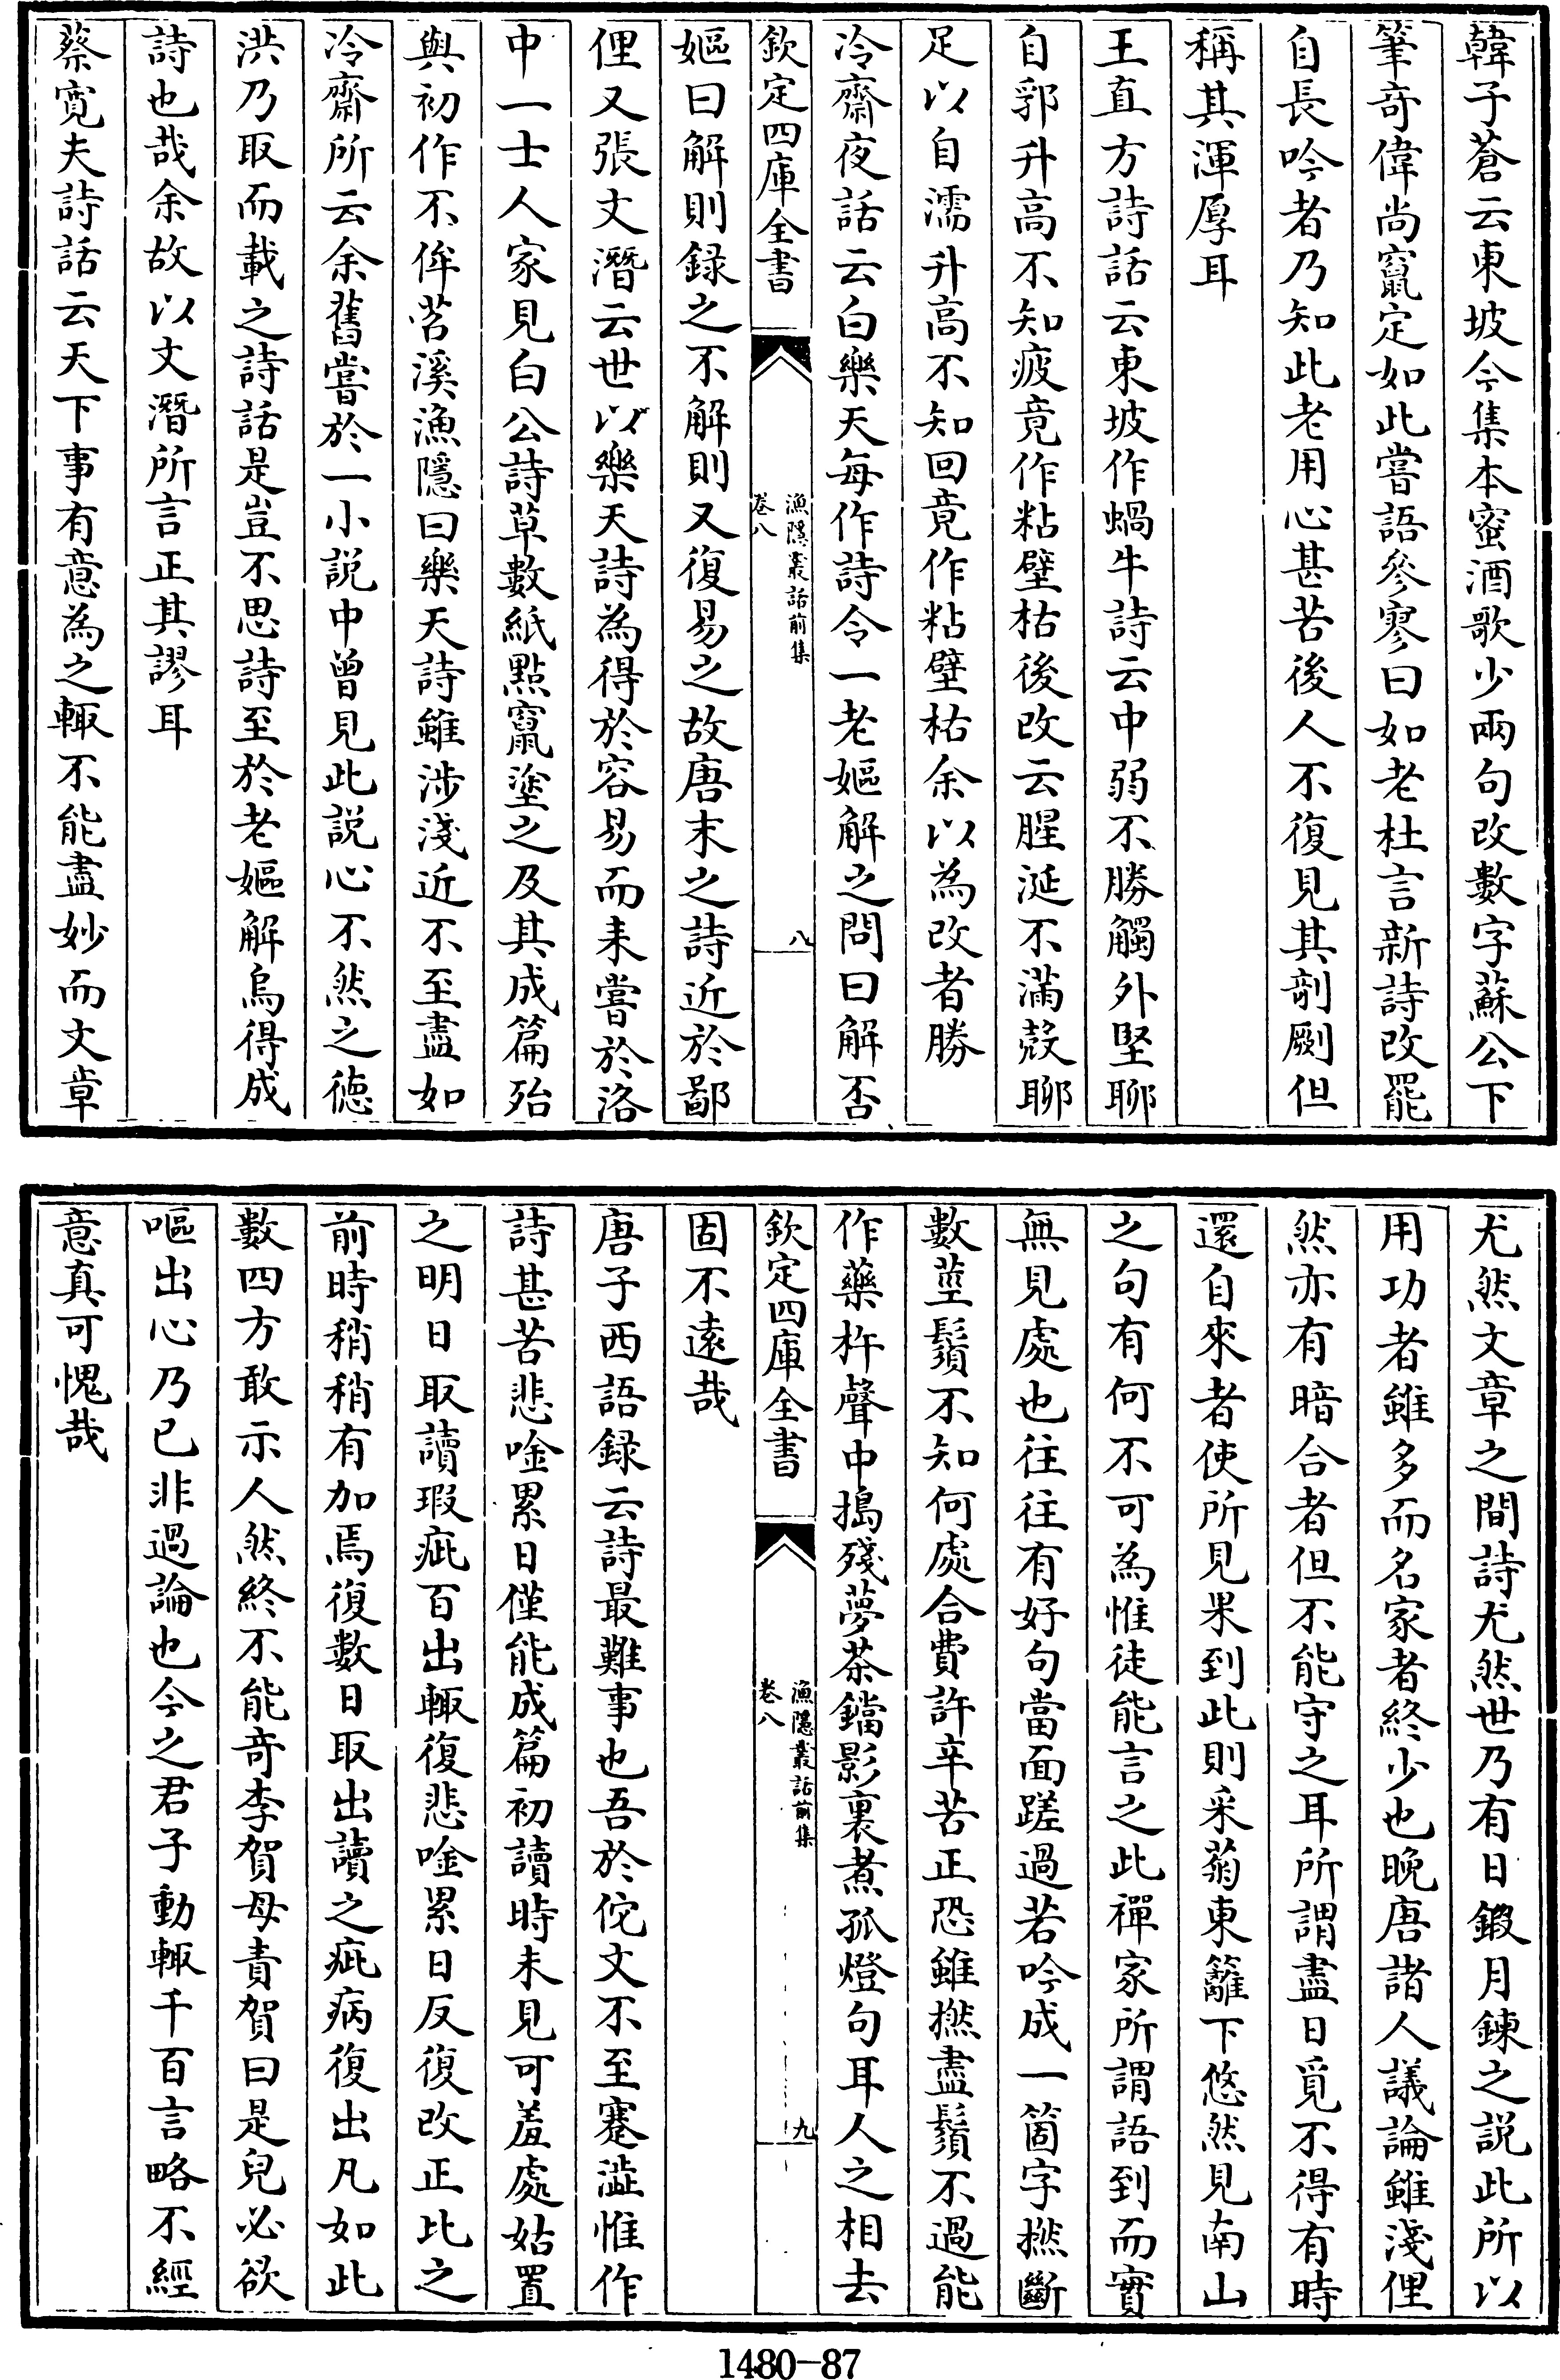 韓子蒼云東坡今集本蜜酒歌少兩句改數字蘇公下
筆奇偉尚竄定如此嘗語參寥曰如老杜言新詩改罷
自長吟者乃知此老用心甚苦後人不復見其剞劂但
稱其渾厚耳
王直方詩話云東坡作蝸牛詩云中弱不勝觸外堅聊
自郛升高不知疲竟作粘壁枯後改云腥涎不滿殼聊
足以自濡升高不知回竟作粘壁枯余以為改者勝
冷齋夜話云白樂天每作詩令一老嫗解之問曰解否
欽定四庫全書
漁隱叢話前集
卷八
八
嫗曰解則録之不解則又復易之故唐末之詩近於鄙
俚又張文潛云世以樂天詩為得於容易而耒嘗於洛
中一士人家見白公詩草數紙點竄塗之及其成篇殆
與初作不侔苕溪漁隱曰樂天詩雖涉淺近不至盡如
冷齋所云余舊嘗於一小説中曾見此説心不然之徳
洪乃取而載之詩話是豈不思詩至於老嫗解烏得成
詩也哉余故以文潛所言正其謬耳
蔡寛夫詩話云天下事有意為之輙不能盡妙而文章
尤然文章之間詩尤然世乃有日鍛月鍊之説此所以
用功者雖多而名家者終少也晚唐諸人議論雖淺俚
然亦有暗合者但不能守之耳所謂盡日覓不得有時
還自來者使所見果到此則采菊東籬下悠然見南山
之句有何不可為惟徒能言之此禪家所謂語到而實
無見處也往往有好句當面蹉過若吟成一箇字撚斷
數莖鬚不知何處合費許辛苦正恐雖撚盡鬚不過能
作藥杵聲中搗殘夢茶鐺影裏煮孤燈句耳人之相去
欽定四庫全書
漁隱叢話前集
卷八
九
固不遠哉
唐子西語録云詩最難事也吾於佗文不至蹇澁惟作
詩甚苦悲唫累日僅能成篇初讀時未見可羞處姑置
之明日取讀瑕疵百出輙復悲唫累日反復改正比之
前時稍稍有加焉復數日取出讀之疵病復出凡如此
數四方敢示人然終不能竒李賀母責賀曰是兒必欲
嘔出心乃已非過論也今之君子動輙千百言略不經
意真可愧哉
1480-87